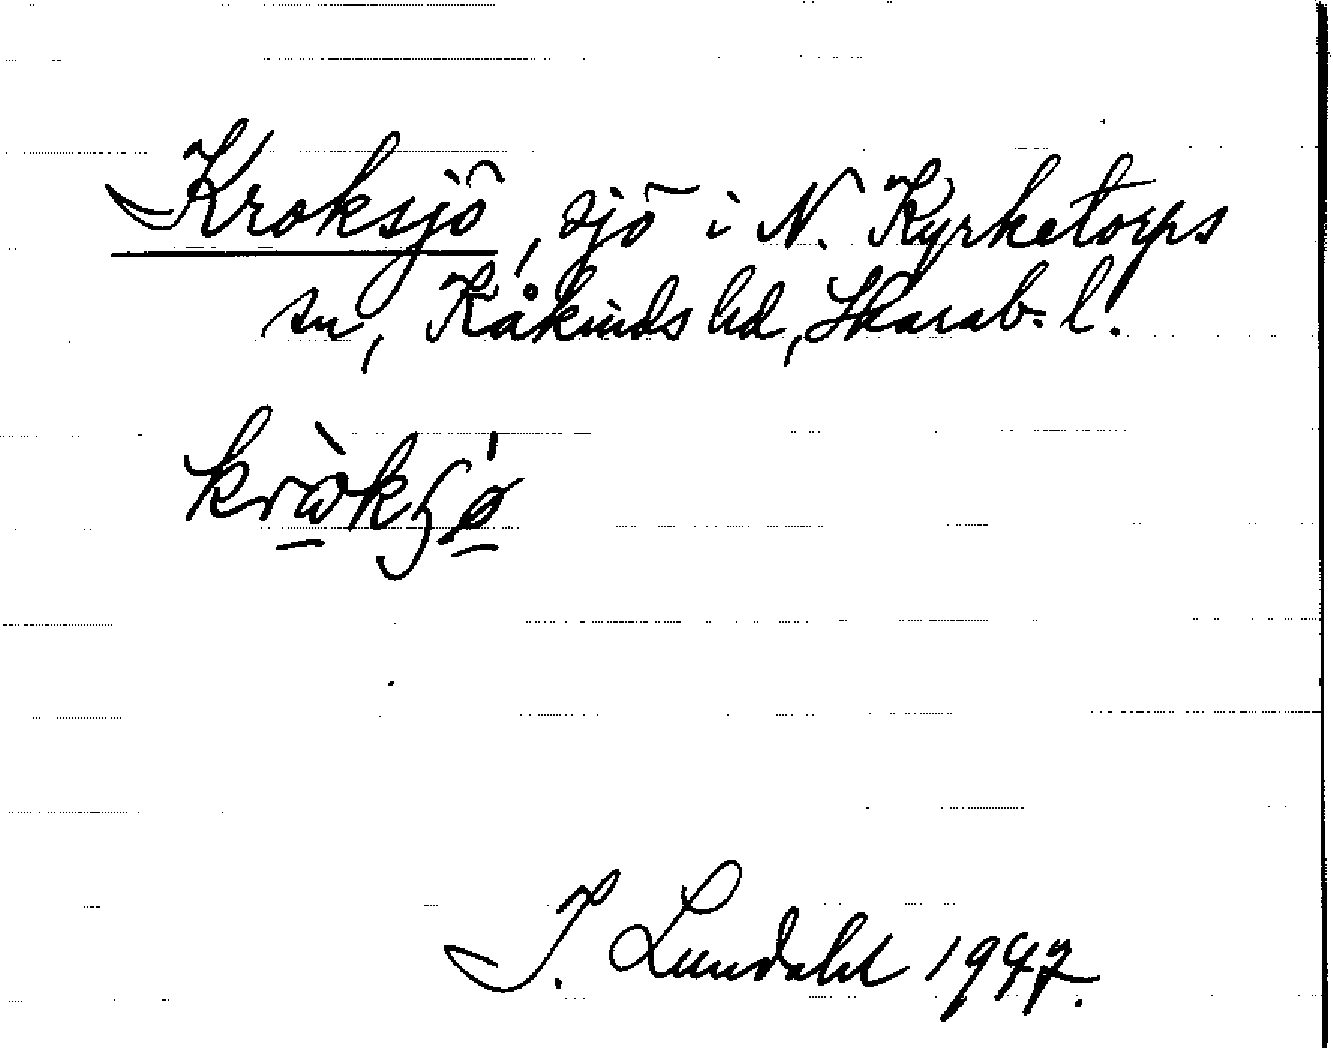 Kroksjö, sjö i N. Kyrketorps
sn, Kåkinds hd, Skarab. l.
kròkʒǿ
I. Lundahl 1947.